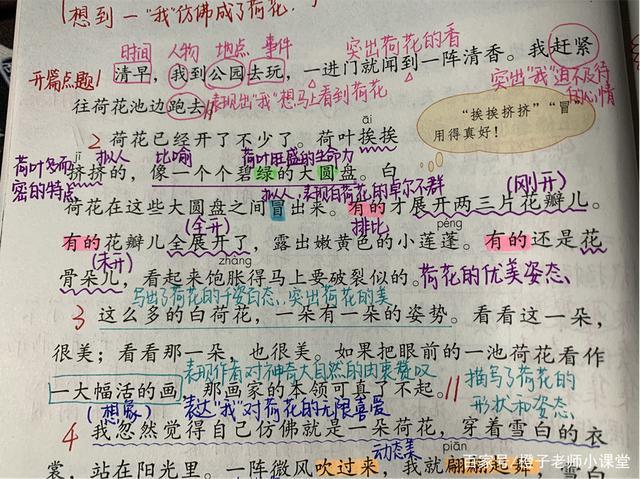 想到一“我”仿佛成了荷花,
时间 人物 地点 事件
突出荷花的香
开篇点题
清早，我到公园去玩，一进门就闻到一阵清香。我赶紧
往荷花池边跑去。
表现出“我”想马上看到荷花
突出“我”迫不及待
的心情
“挨挨挤挤”“冒”
用得真好！
āi
2 荷花已经开了不少了。荷叶挨挨
荷叶多而
密的特点
jǐ
拟人 比喻
荷叶旺盛的生命力
挤挤的，像一个个碧绿的大圆盘。白
拟人,表现白荷花的卓尔不群
(刚开)
荷花在这些大圆盘之间冒出来。有的才展开两三片花瓣儿。
(全开)
排比
péng
有的花瓣儿全展开了，露出嫩黄色的小莲蓬。有的还是花
(未开)
zhàng
骨朵儿，看起来饱胀得马上要破裂似的。
荷花的优美姿态、
写出了荷花的千姿百态、突出荷花的美
3 这么多的白荷花，一朵有一朵的姿势。看看这一朵，
很美；看看那一朵，也很美。如果把眼前的一池荷花看作
表现作者对神奇大自然的由衷赞叹
一大幅活的画，那画家的本领可真了不起。
描写了荷花的
形状和姿态
(想象)
表达“我”对荷花的无限喜爱
4 我忽然觉得自己仿佛就是一朵荷花，穿着雪白的衣
动态美
piān
裳，站在阳光里。一阵微风吹过来，我就翩翩起舞，雪白
百家号/橙子老师小课堂